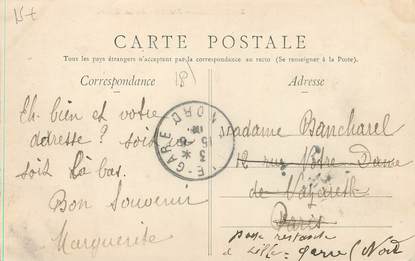 15+
CARTE POSTALE
Tous les pays étrangers n'acceptent pas la correspondance au recto (Se renseigner à la Poste).
Correspondance
Adresse
Eh bien et votre
adresse? soit
soit là bas.
Bon Souvenir
Marguerite
E-GARE
NORD
15
3
Madame Bancharel
12 rue Notre Dame
de Nazareth
Paris
poste restante
à Lille-gare (Nord